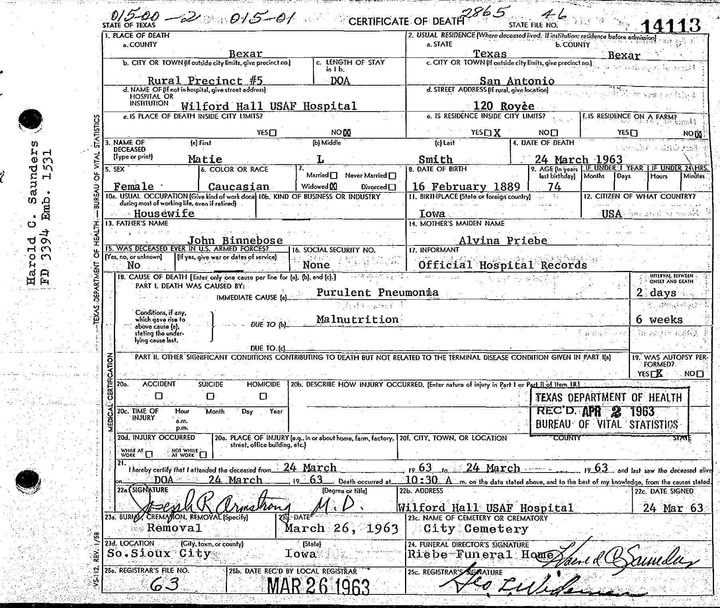 015-00-2 015-01 2865 46
STATE OF TEXAS CERTIFICATE OF DEATH STATE FILE NO. 14113
1. PLACE OF DEATH 2. USUAL RESIDENCE (Where deceased lived. If institution: residence before admission)
a. COUNTY a. STATE b. COUNTY
Bexar Texas Bexar
b. CITY OR TOWN (If outside city limits, give precinct no.) c. LENGTH OF STAY in 1 b. c. CITY OR TOWN (If outside city limits, give precinct no.)
Rural Precinct #5 DOA San Antonio
d. NAME OF (If not in hospital, give street address) HOSPITAL OR INSTITUTION d. STREET ADDRESS (If rural, give location)
Wilford Hall USAF Hospital 120 Royce
e. IS PLACE OF DEATH INSIDE CITY LIMITS? e. IS RESIDENCE INSIDE CITY LIMITS? f. IS RESIDENCE ON A FARM?
YES NO X YES X NO YES NO X
3. NAME OF DECEASED (Type or print) (a) First (b) Middle (c) Last 4. DATE OF DEATH
Matie L Smith 24 March 1963
5. SEX 6. COLOR OR RACE 7. Married Never Married Widowed X Divorced 8. DATE OF BIRTH 9. AGE (In years last birthday) IF UNDER 1 YEAR Months Days IF UNDER 24 HRS. Hours Minutes
Female Caucasian 16 February 1889 74
10a. USUAL OCCUPATION (Give kind of work done during most of working life, even if retired) 10b. KIND OF BUSINESS OR INDUSTRY 11. BIRTHPLACE (State or foreign country) 12. CITIZEN OF WHAT COUNTRY?
Housewife Iowa USA
13. FATHER'S NAME 14. MOTHER'S MAIDEN NAME
John Binnebose Alvina Priebe
15. WAS DECEASED EVER IN U.S. ARMED FORCES? 16. SOCIAL SECURITY NO. 17. INFORMANT
(Yes, no, or unknown) (If yes, give war or dates of service)
No None Official Hospital Records
18. CAUSE OF DEATH [Enter only one cause per line for (a), (b), and (c).] INTERVAL BETWEEN ONSET AND DEATH
PART I. DEATH WAS CAUSED BY:
IMMEDIATE CAUSE (a) Purulent Pneumonia 2 days
Conditions, if any, which gave rise to above cause (a), stating the underlying cause last.
DUE TO (b) Malnutrition 6 weeks
DUE TO (c)
PART II. OTHER SIGNIFICANT CONDITIONS CONTRIBUTING TO DEATH BUT NOT RELATED TO THE TERMINAL DISEASE CONDITION GIVEN IN PART I(a) 19. WAS AUTOPSY PERFORMED?
YES X NO
20a. ACCIDENT SUICIDE HOMICIDE 20b. DESCRIBE HOW INJURY OCCURRED. (Enter nature of injury in Part I or Part II of Item 18.)
20c. TIME OF INJURY Hour Month Day Year
a.m.
p.m.
TEXAS DEPARTMENT OF HEALTH
REC'D. APR 2 1963
BUREAU OF VITAL STATISTICS
20d. INJURY OCCURRED WHILE AT WORK NOT WHILE AT WORK 20e. PLACE OF INJURY (e.g., in or about home, farm, factory, street, office building, etc.) 20f. CITY, TOWN, OR LOCATION COUNTY STATE
21. I hereby certify that I attended the deceased from 24 March 19 63 to 24 March 19 63 and last saw the deceased alive
on DOA 24 March 19 63 Death occurred at 10:30 A. m. on the date stated above, and to the best of my knowledge, from the causes stated.
22a. SIGNATURE (Degree or title) 22b. ADDRESS 22c. DATE SIGNED
Joseph R Armstrong M.D. Wilford Hall USAF Hospital 24 Mar 63
23a. BURIAL, CREMATION, REMOVAL (Specify) 23b. DATE 23c. NAME OF CEMETERY OR CREMATORY
Removal March 26, 1963 City Cemetery
23d. LOCATION (City, town, or county) (State) 24. FUNERAL DIRECTOR'S SIGNATURE
So. Sioux City Iowa Riebe Funeral Home Harold C Saunders
25a. REGISTRAR'S FILE NO. 25b. DATE REC'D BY LOCAL REGISTRAR 25c. REGISTRAR'S SIGNATURE
63 MAR 26 1963
Harold C. Saunders
FD 3394 Emb. 1531
TEXAS DEPARTMENT OF HEALTH — BUREAU OF VITAL STATISTICS
MEDICAL CERTIFICATION
VS-112, REV. 1/58